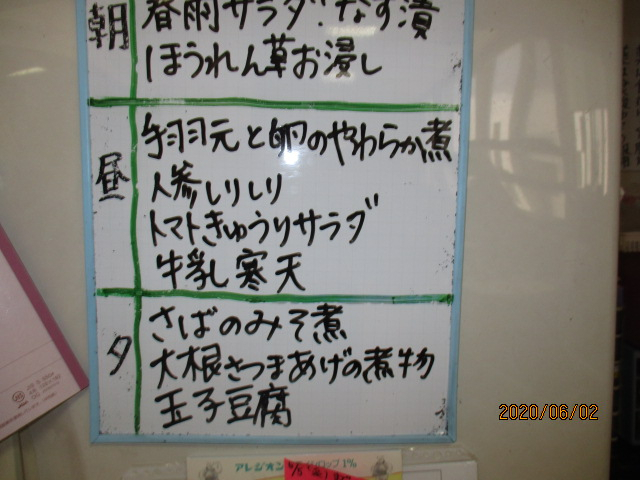 朝
春雨サラダ・なす漬
ほうれん草お浸し
昼
手羽元と卵のやわらか煮
人参しりしり
トマトきゅうりサラダ
牛乳寒天
夕
さばのみそ煮
大根さつまあげの煮物
玉子豆腐
2020/06/02
アレジオン
1%